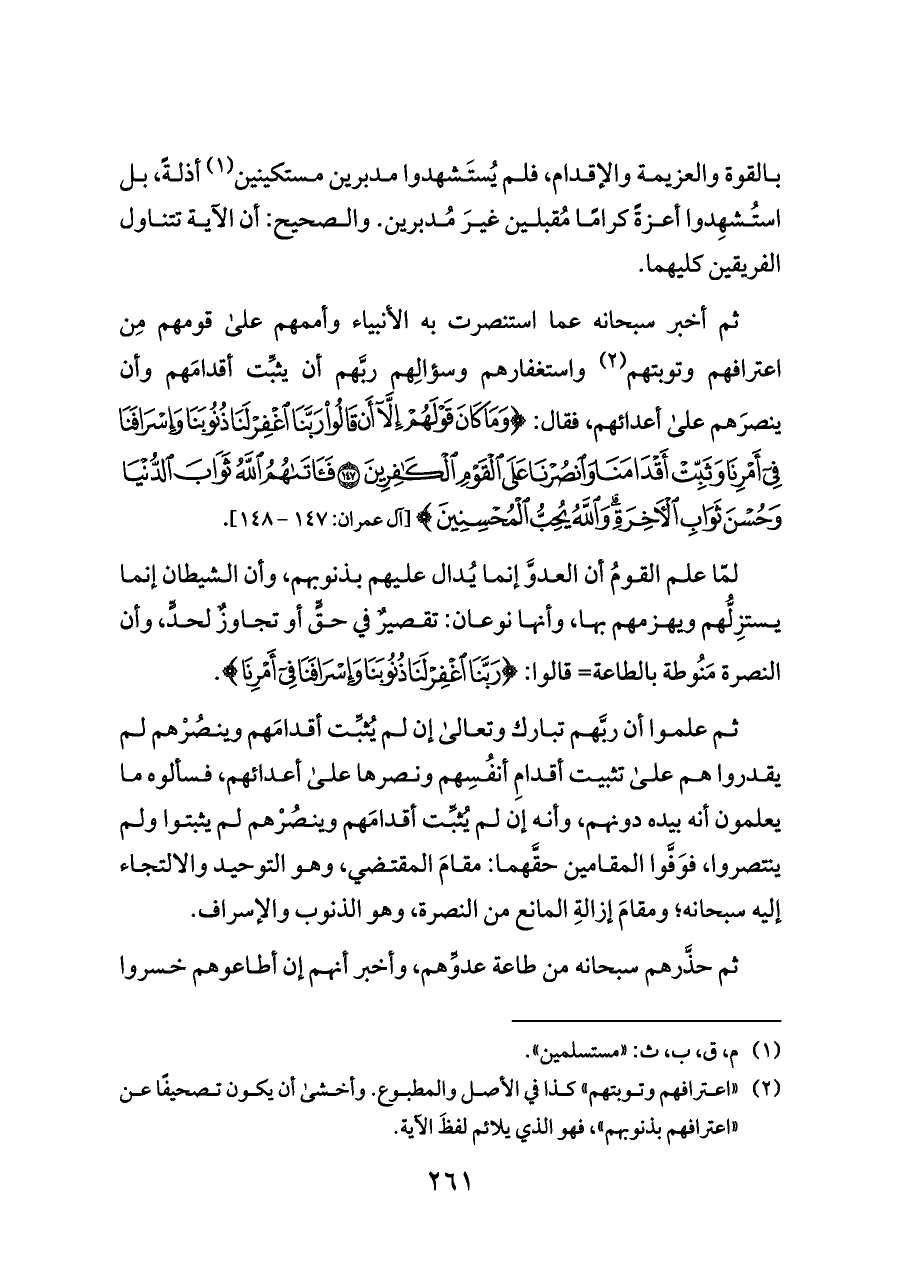 بالقوة والعزيمة والإقدام، فلم يُستَشهدوا مدبرين مستكينين(١) أذلةً، بل
استُشهِدوا أعزةً كرامًا مُقبلين غيرَ مُدبرين. والصحيح: أن الآية تتناول
الفريقين كليهما.
ثم أخبر سبحانه عما استنصرت به الأنبياء وأممهم علىٰ قومهم مِن
اعترافهم وتوبتهم(٢) واستغفارهم وسؤالِهم ربَّهم أن يثبِّت أقدامَهم وأن
ينصرَهم علىٰ أعدائهم، فقال: ﴿وَمَا كَانَ قَوْلَهُمْ إِلَّآ أَن قَالُوا۟ رَبَّنَا ٱغْفِرْ لَنَا ذُنُوبَنَا وَإِسْرَافَنَا
فِىٓ أَمْرِنَا وَثَبِّتْ أَقْدَامَنَا وَٱنصُرْنَا عَلَى ٱلْقَوْمِ ٱلْكَـٰفِرِينَ ١٤٧ فَـَٔاتَىٰهُمُ ٱللَّهُ ثَوَابَ ٱلدُّنْيَا
وَحُسْنَ ثَوَابِ ٱلْـَٔاخِرَةِ ۗ وَٱللَّهُ يُحِبُّ ٱلْمُحْسِنِينَ﴾ [آل عمران: ١٤٧ – ١٤٨].
لمّا علم القومُ أن العدوَّ إنما يُدال عليهم بذنوبهم، وأن الشيطان إنما
يستزِلُّهم ويهزمهم بها، وأنها نوعان: تقصيرٌ في حقٍّ أو تجاوزٌ لحدٍّ، وأن
النصرة مَنُوطة بالطاعة= قالوا: ﴿رَبَّنَا ٱغْفِرْ لَنَا ذُنُوبَنَا وَإِسْرَافَنَا فِىٓ أَمْرِنَا﴾.
ثم علموا أن ربَّهم تبارك وتعالىٰ إن لم يُثبِّت أقدامَهم وينصُرْهم لم
يقدروا هم علىٰ تثبيت أقدامِ أنفُسِهم ونصرها علىٰ أعدائهم، فسألوه ما
يعلمون أنه بيده دونهم، وأنه إن لم يُثبِّت أقدامَهم وينصُرْهم لم يثبتوا ولم
ينتصروا، فوَفَّوا المقامين حقَّهما: مقامَ المقتضي، وهو التوحيد والالتجاء
إليه سبحانه؛ ومقامَ إزالةِ المانع من النصرة، وهو الذنوب والإسراف.
ثم حذَّرهم سبحانه من طاعة عدوِّهم، وأخبر أنهم إن أطاعوهم خسروا
(١) م، ق، ب، ث: «مستسلمين».
(٢) «اعترافهم وتوبتهم» كذا في الأصل والمطبوع. وأخشىٰ أن يكون تصحيفًا عن
«اعترافهم بذنوبهم»، فهو الذي يلائم لفظَ الآية.
٢٦١